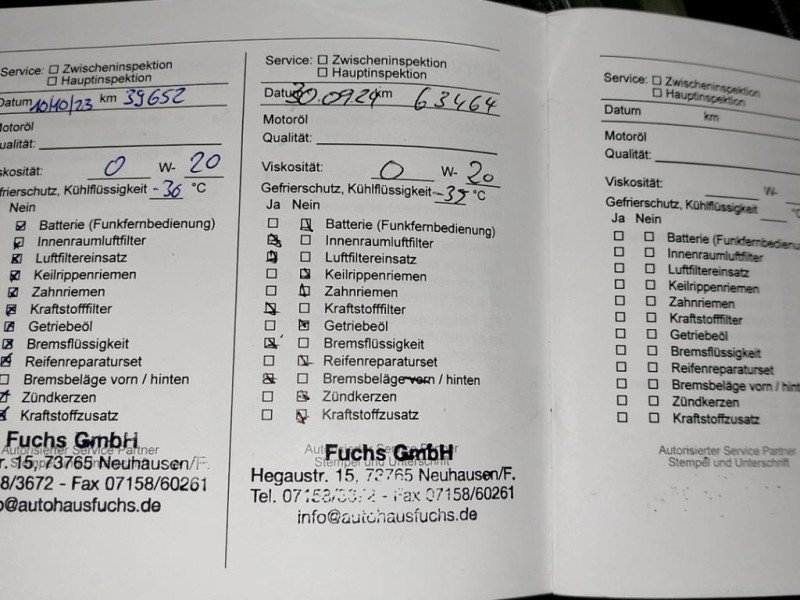 Service: ☐ Zwischeninspektion
☐ Hauptinspektion
Datum 10/10/23 km 39652
Motoröl
Qualität:
Viskosität: 0 W- 20
Gefrierschutz, Kühlflüssigkeit -36 °C
Nein
Batterie (Funkfernbedienung)
Innenraumluftfilter
Luftfiltereinsatz
Keilrippenriemen
Zahnriemen
Kraftstofffilter
Getriebeöl
Bremsflüssigkeit
Reifenreparaturset
Bremsbeläge vorn / hinten
Zündkerzen
Kraftstoffzusatz
Fuchs GmbH
Autorisierter Service Partner
tr. 15, 73765 Neuhausen/F.
8/3672 - Fax 07158/60261
o@autohausfuchs.de
Service: ☐ Zwischeninspektion
☐ Hauptinspektion
Datum 30.09.24 km 63464
Motoröl
Qualität:
Viskosität: 0 W- 20
Gefrierschutz, Kühlflüssigkeit -35 °C
Ja Nein
Batterie (Funkfernbedienung)
Innenraumluftfilter
Luftfiltereinsatz
Keilrippenriemen
Zahnriemen
Kraftstofffilter
Getriebeöl
Bremsflüssigkeit
Reifenreparaturset
Bremsbeläge vorn / hinten
Zündkerzen
Kraftstoffzusatz
Autorisierter Service Partner
Fuchs GmbH
Stempel und Unterschrift
Hegaustr. 15, 73765 Neuhausen/F.
Tel. 07158/3672 - Fax 07158/60261
info@autohausfuchs.de
Service: ☐ Zwischeninspektion
☐ Hauptinspektion
Datum km
Motoröl
Qualität:
Viskosität: W-
Gefrierschutz, Kühlflüssigkeit °C
Ja Nein
Batterie (Funkfernbedienu
Innenraumluftfilter
Luftfiltereinsatz
Keilrippenriemen
Zahnriemen
Kraftstofffilter
Getriebeöl
Bremsflüssigkeit
Reifenreparaturset
Bremsbeläge vorn / hinten
Zündkerzen
Kraftstoffzusatz
Autorisierter Service Partner
Stempel und Unterschrift